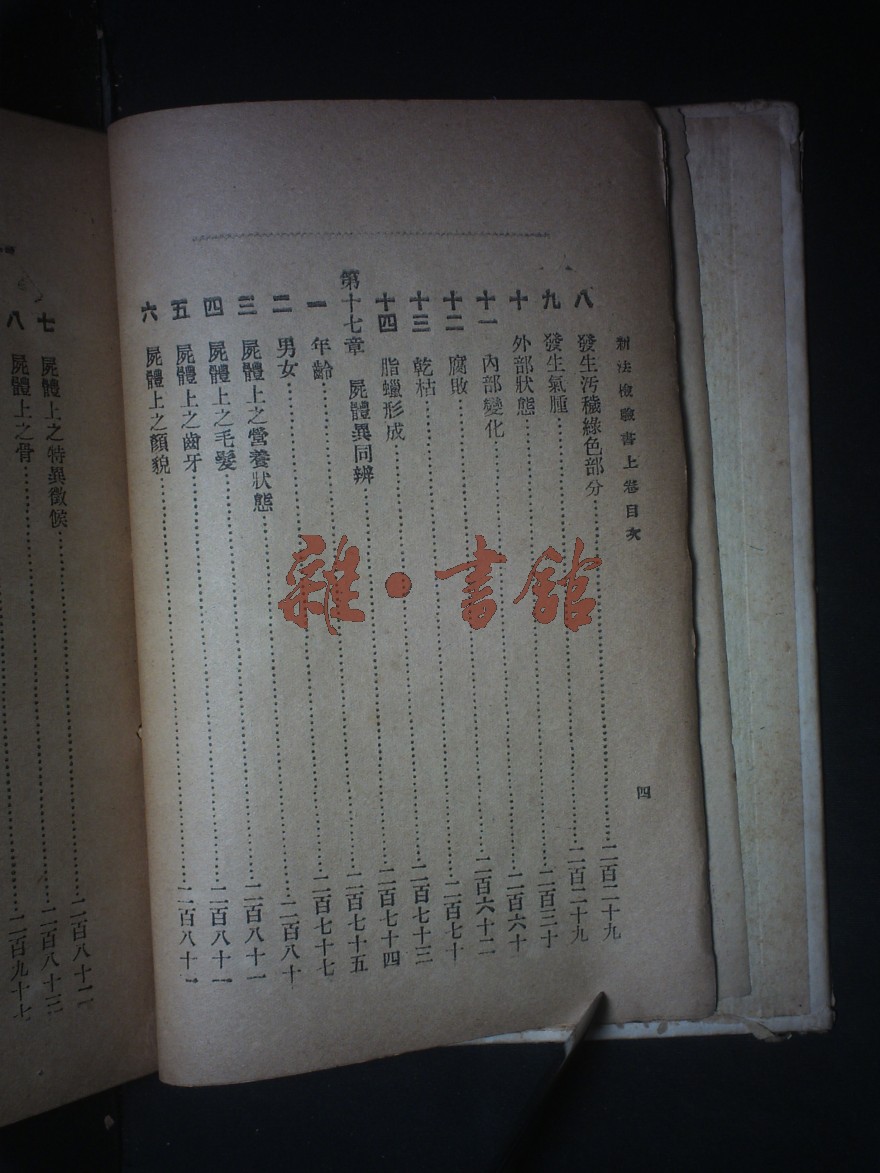 刑法檢驗書上卷目次 四
八 發生汚穢綠色部分……二百二十九
九 發生氣腫……二百二十九
十 外部狀態……二百三十
十一 內部變化……二百六十
十二 腐敗……二百六十二
十三 乾枯……二百七十
十四 脂蠟形成……二百七十三
第十七章 屍體異同辨……二百七十四
一 年齡……二百七十五
二 男女……二百七十七
三 屍體上之營養狀態……二百八十
四 屍體上之毛髮……二百八十一
五 屍體上之齒牙……二百八十一
六 屍體上之顏貌……二百八十一
七 屍體上之特異徵候……二百八十二
八 屍體上之骨……二百八十三
……二百九十七
雜·書館